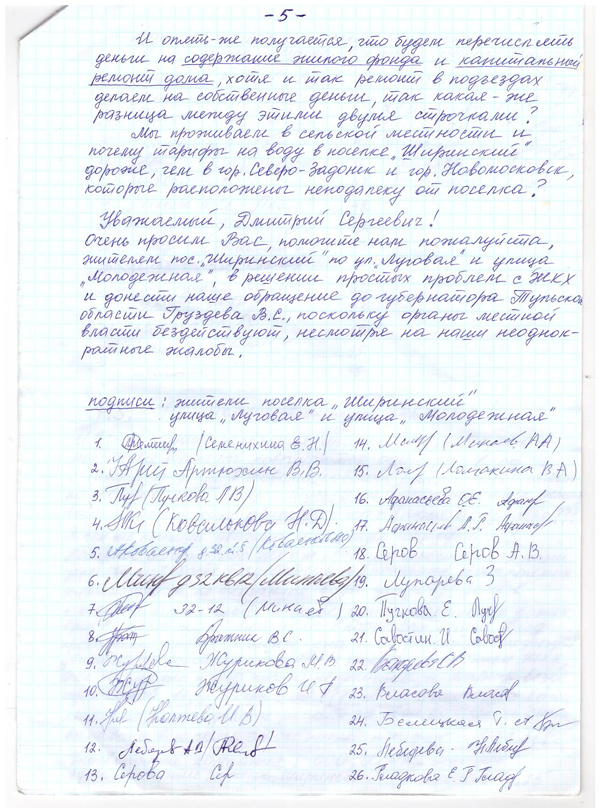 - 5 -
И опять-же получается, что будем перечислять
деньги на содержание жилого фонда и капитальный
ремонт дома, хотя и так ремонт в подъездах
делаем на собственные деньги, так какая-же
разница между этими двумя строчками?
Мы проживаем в сельской местности и
почему тарифы на воду в поселке „Ширинский"
дороже, чем в гор. Северо-Задонск и гор. Новомосковск,
которые расположены неподалеку от поселка?
Уважаемый, Дмитрий Сергеевич!
Очень просим Вас, помогите нам пожалуйста,
жителям пос. „Ширинский" по ул. „Луговая" и улица
„Молодежная", в решении простых проблем с ЖКХ
и донести наше обращение до губернатора Тульской
области Груздева В.С., поскольку органы местной
власти бездействуют, несмотря на наши неоднок-
ратные жалобы.
подписи: жители поселка „Ширинский"
улица „Луговая" и улица „Молодежная"
1. (Семенихина Е.Н.)
2. Артюхин В.В.
3. (Пучкова Л В)
4. (Ковалькова Н.Д).
5. д 32 кв 5
6. д 32 кв 12 (Минаева)
7. 32-12 (Минаев)
8. Вражник В С.
9. Журикова М В
10. Журиков И А
11. (Коптева И В)
12. Лебедев А Д
13. Серова Сер
14. (Минаев А А)
15. (Ломакина В А)
16. Афанасьева О.Е.
17. Афанасьев
18. Серов Серов А. В.
19. Лупарева З
20. Пучкова Е.
21. Савостин. И
22.
23. Власова
24. Белицкая Г. А
25. Лебедева -
26. Гладкова Е Р Глад